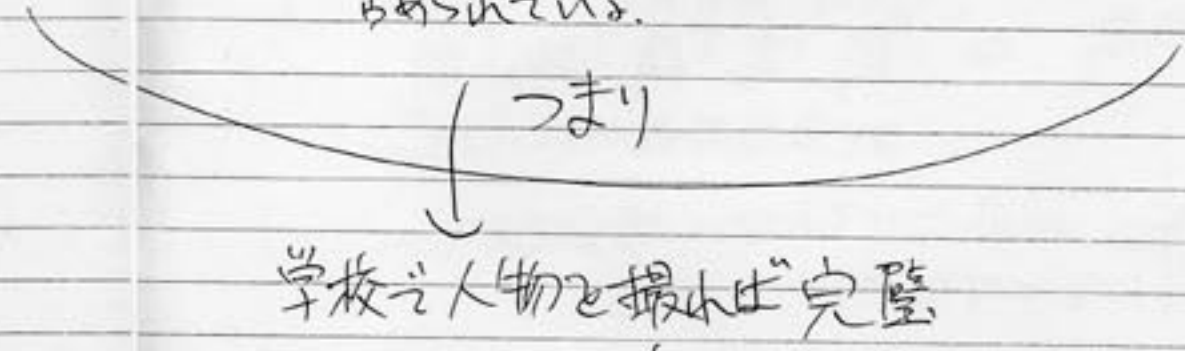 められている.
つまり
学校で人物を撮れば完璧